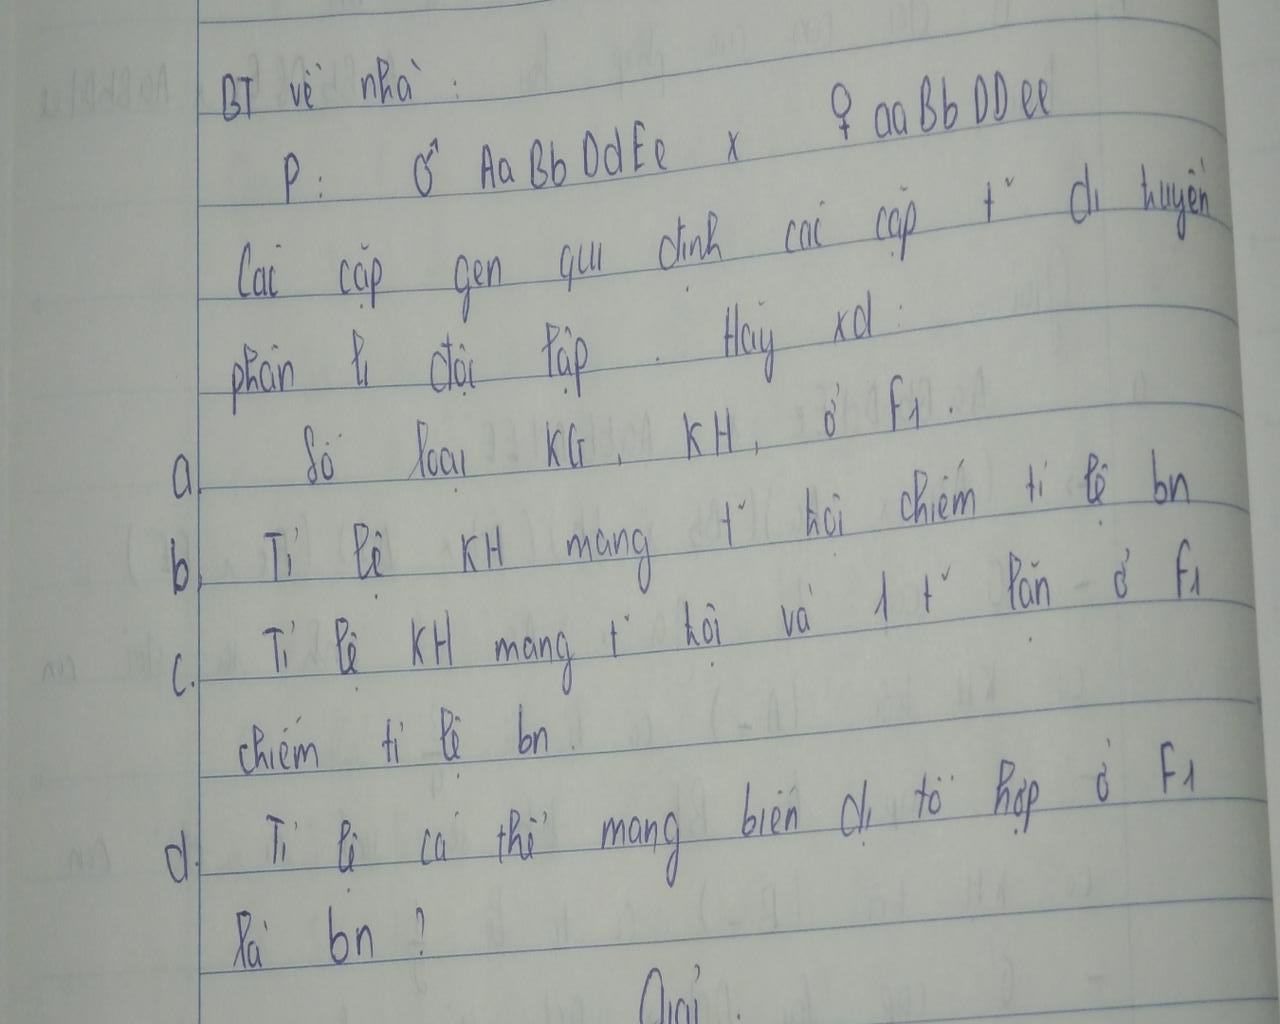 BT về nhà :
P : ♂ AaBbDdEe x ♀ aaBbDDee
Các cặp gen qui định các cặp t² di truyền
phân li độc lập . Hãy xđ :
a. Số loại KG, KH, ở F1.
b. Tỉ lệ KH mang t² trội chiếm tỉ lệ bn
c. Tỉ lệ KH mang t² trội và 1 t² lặn ở F1
chiếm tỉ lệ bn.
d. Tỉ lệ cá thể mang biến dị tổ hợp ở F1
là bn ?
Giải .